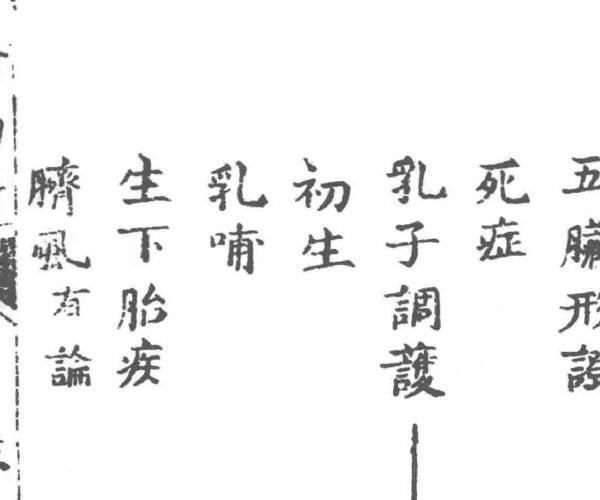 五臟形證
死症
乳子調護
初生
乳哺
生下胎疾
臍風有論